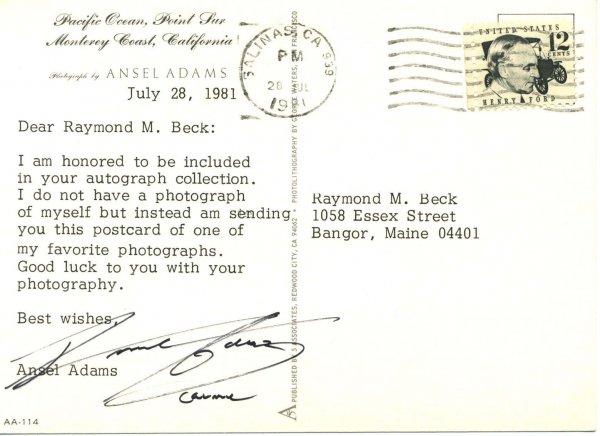 Pacific Ocean, Point Sur
Monterey Coast, California
Photograph by ANSEL ADAMS
July 28, 1981
Dear Raymond M. Beck:
I am honored to be included
in your autograph collection.
I do not have a photograph
of myself but instead am sending
you this postcard of one of
my favorite photographs.
Good luck to you with your
photography.
Best wishes,
Ansel Adams
Ansel Adams
AA-114
SALINAS, CA 939
PM
28 JUL
1981
UNITED STATES
12
CENTS
HENRY FORD
Raymond M. Beck
1058 Essex Street
Bangor, Maine 04401
ASSOCIATES, REDWOOD CITY, CA 94062 • PHOTOLITHOGRAPHY BY GEORGE WATERS, SAN FRANCISCO